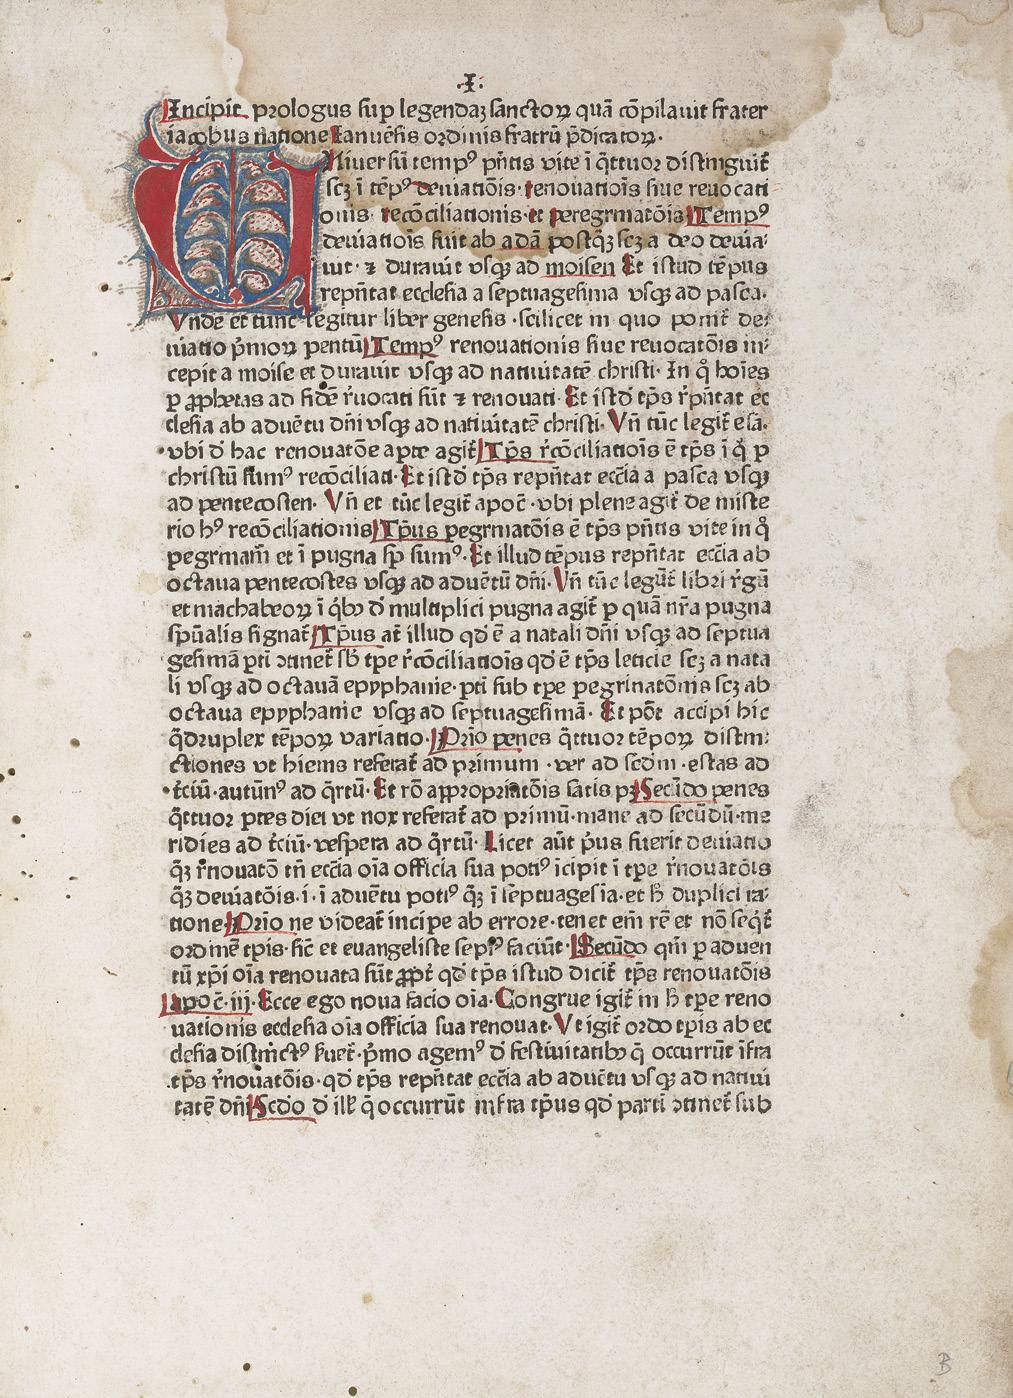 .I.
Incipit prologus sup̱ legendaꝫ sanctoꝝ quā cōpilauit frater
iacobus natione Ianuēsis ordinis fratrū p̄dicatoꝝ.
Niuersū tempꝰ pn̄tis vite ī q̄ttuor distinguit᷑
scꝫ ī tēpꝰ deuiatiōis· renouatiōis siue reuocati
onis· recōciliationis· et peregrinatōis Tempꝰ
deuiatiōis fuit ab adā postq̄ꝫ scꝫ a deo deuia-
uit· ⁊ durauit vsqꝫ ad moisen Et istud tēpus
repn̄tat ecclesia a septuagesima vsqꝫ ad pasca.
Vnde et tunc legitur liber genesis ·scilicet in quo ponit᷑ de-
uiatio p̄moꝝ pentū Tempꝰ renouationis siue reuocatōis in-
cepit a moise et durauit vsqꝫ ad natiuitatē christi· In qͦ hoīes
ꝑ ꝓphetas ad fidē r̄uocati sūt ⁊ renouati· Et istd̄ tp̄s r̄pn̄tat ec
clesia ab aduētu dn̄i vsqꝫ ad natiuitatē christi· Vn̄ tūc legit᷑ esa.
vbi d̄ hac renouatōe apte agit᷑ Tp̄s r̄cōciliatiōis ē tp̄s ī qͦ ꝑ
christū sumꝰ recōciliati· Et istd̄ tp̄s repn̄tat ecc̄ia a pasca vsqꝫ
ad pentecosten· Vn̄ et tūc legit᷑ apoc̄· vbi plene agit᷑ de miste
rio hꝰ recōciliationis Tp̄us pegrinatōis ē tp̄s pn̄tis vite in qͦ
pegrinam̄ et ī pugna sp̱ sumꝰ· Et illud tēpus repn̄tat ecc̄ia ab
octaua pentecostes vsqꝫ ad aduētū dn̄i· Vn̄ tūc legūt᷑ libri r̄gū
et machabeoꝝ ī qͥbꝫ d̄ multiplici pugna agit᷑ ꝑ quā nr̄a pugna
sp̄ualis signat᷑ Tp̄us at̄ illud qd̄ ē a natali dn̄i vsqꝫ ad septua
gesimā p̱ti ꝯtinet᷑ sb̄ tp̱e r̄cōciliatiōis qd̄ ē tp̄s leticie scꝫ a nata
li vsqꝫ ad octauā epyphanie· p̱ti sub tp̱e pegrinatōnis scꝫ ab
octaua epyphanie vsqꝫ ad septuagesimā· Et pōt accipi hic
q̄druplex tēpoꝝ variatio· Prīo penes q̄ttuor tēpoꝝ distin-
ctiones vt hiems referat᷑ ad primum ·ver ad scd̄m ·estas ad
t̄ciū·autūnꝰ ad q̄rtū· Et rō appropriatōis satis pꝫ Secūdo penes
q̄ttuor ptes diei vt nox referat᷑ ad primū·mane ad secūdū·me
ridies ad t̄ciū·vespera ad q̄rtū· Licet aūt p̄us fuerit deuiatio
q̄ꝫ r̄nouatō tn̄ ecc̄ia oīa officia sua potiꝰ īcipit ī tp̱e r̄nouatōis
q̄ꝫ deuiatōis·i·ī aduētu potiꝰ q̄ꝫ ī septuagesīa·et h̄ duplici ra-
tione Prīo ne videat᷑ incipe ab errore·tenet em̄ rē et nō seqͥt᷑
ordinē tp̱is· sic̄ et euangeliste sepꝰ faciūt· Secūdo qm̄ ꝑ aduen
tū xp̄i oīa renouata sūt ꝓpt̄ qd̄ tp̄s istud dicit᷑ tp̄s renouatōis
apoc̄·iij· Ecce ego noua facio oīa· Congrue igit᷑ in h̄ tp̱e reno
uationis ecclesia oīa officia sua renouat· Vt igit᷑ ordo tp̱is ab ec
clesia distinctꝰ suet᷑·p̄mo agemꝰ d̄ festiuitatibꝫ q̄ occurrūt īfra
tp̄s r̄nouatōis·qd̄ tp̄s repn̄tat ecc̄ia ab aduētu vsqꝫ ad natiui
tatē dn̄i Scd̄o d̄ ill̄ q̄ occurrūt infra tp̄us qd̄ parti ꝯtinet᷑ sub
B